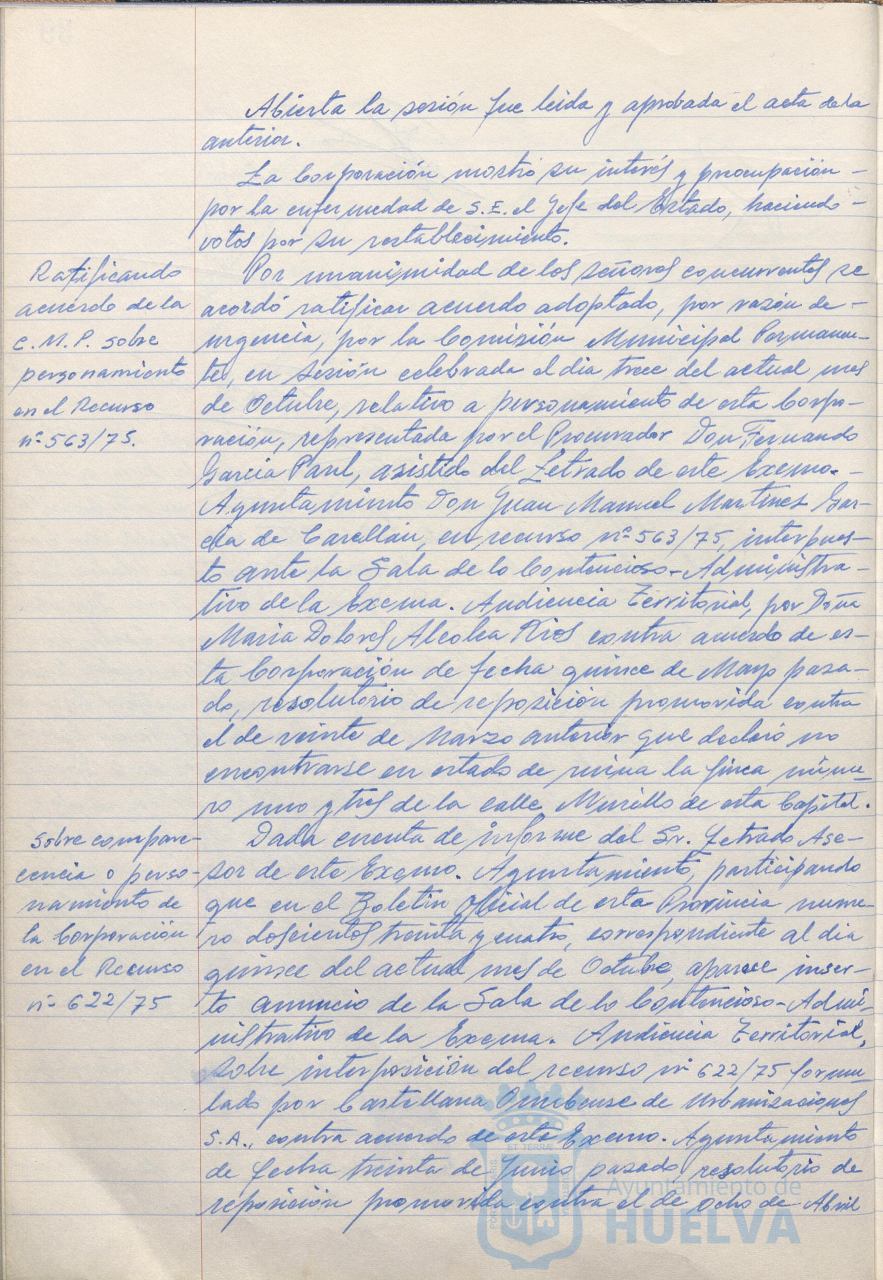 Abierta la sesión fue leida y aprobada el acta de la
anterior.
La Corporación mostró su interés y preocupación -
por la enfermedad de S.E. el Jefe del Estado, haciendo -
votos por su restablecimiento.
Ratificando
acuerdo de la
C.M.P. sobre
personamiento
en el Recurso
nº 563/75.
Por unanimidad de los señores concurrentes se
acordó ratificar acuerdo adoptado, por razón de -
urgencia, por la Comisión Municipal Permanen-
te, en sesión celebrada el dia trece del actual mes
de Octubre, relativo a personamiento de esta Corpo-
ración, representada por el Procurador Don Fernando
Garcia Parul, asistido del Letrado de este Excmo. -
Ayuntamiento Don Juan Manuel Martinez Gar-
cia de en recurso nº 563/75, interpues-
to ante la Sala de lo Contencioso-Administra-
tivo de la Excma. Audiencia Territorial, por Doña
Maria Dolores Alcolea Rios contra acuerdo de es-
ta Corporación de fecha quince de Mayo pasa-
do, resolutorio de reposición promovida contra
el de veinte de Marzo anterior que declaró no
encontrarse en estado de ruina la finca núme-
ro uno y tres de la calle Murillo de esta Capital.
Sobre compare-
cencia o perso-
namiento de
la Corporación
en el Recurso
nº 622/75
Dada cuenta de informe del Sr. Letrado Ase-
sor de este Excmo. Ayuntamiento, participando
que en el Boletin Oficial de esta Provincia nume-
ro doscientos treinta y cuatro, correspondiente al dia
quince del actual mes de Octubre, aparece inser-
to anuncio de la Sala de lo Contencioso-Admi-
nistrativo de la Excma. Audiencia Territorial,
sobre interposición del recurso nº 622/75 formu-
lado por Castellana Onubense de Urbanizaciones
S.A., contra acuerdo de este Excmo. Ayuntamiento
de fecha treinta de Junio pasado resolutorio de
reposición promovida contra el de ocho de Abril
Ayuntamiento de
HUELVA